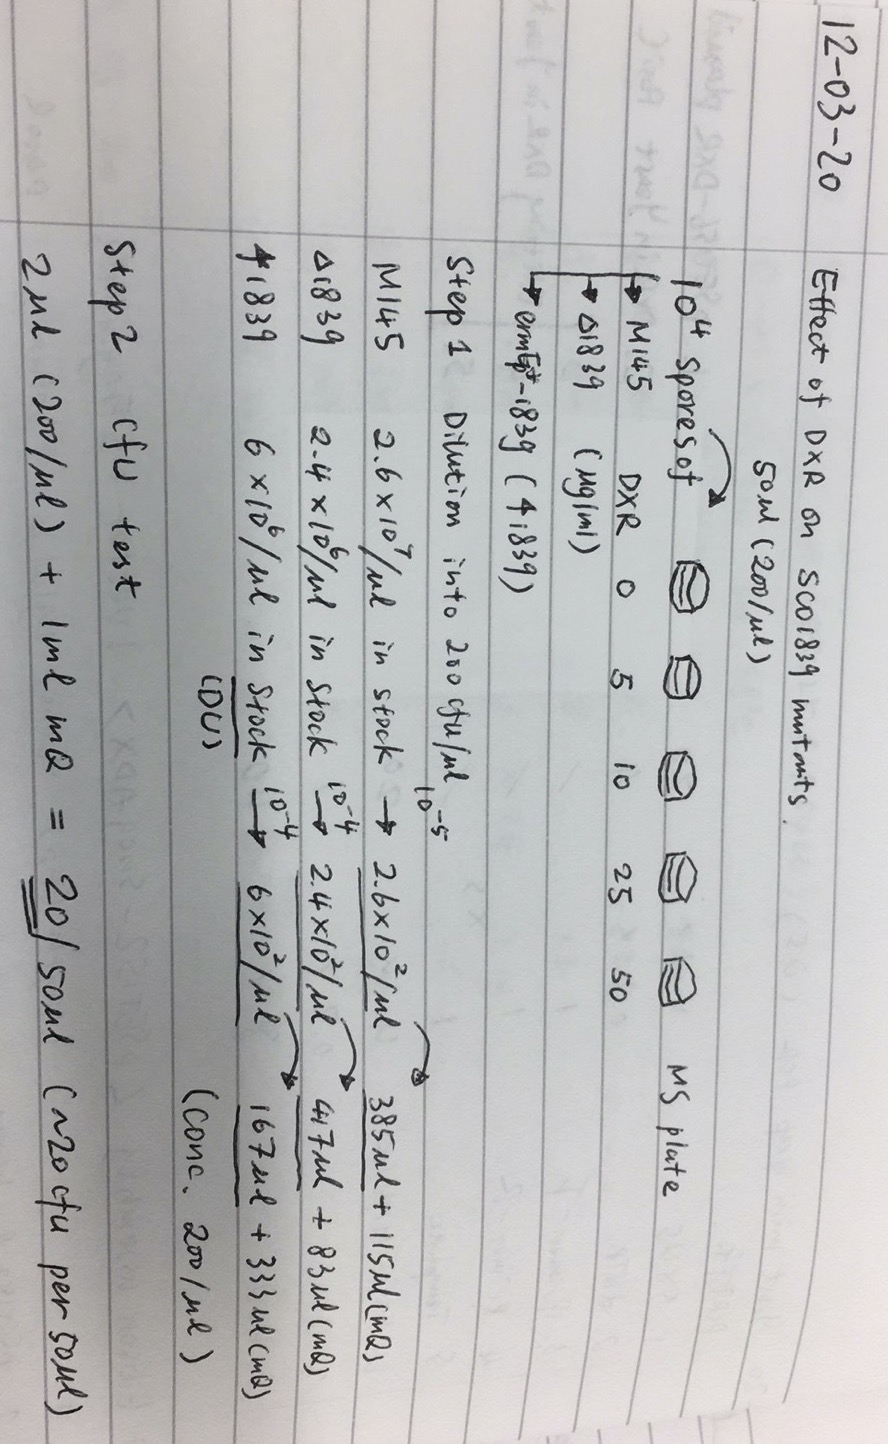 12-03-20
Effect of DXR on SCO1839 mutants.
50µl (200/µl)
10⁴ spores of MS plate
→ M145 DXR 0 5 10 25 50
→ Δ1839 (µg/ml)
→ ermEp*-1839 (↑1839)
Step 1 Dilution into 200 cfu/µl
M145 2.6×10⁷/µl in stock 10⁻⁵→ 2.6×10²/µl 385µl + 115µl (mQ)
Δ1839 2.4×10⁶/µl in stock 10⁻⁴→ 2.4×10²/µl 417µl + 83µl (mQ)
↑1839 6×10⁶/µl in stock 10⁻⁴→ 6×10²/µl 167µl + 333µl (mQ)
(DU) (conc. 200/µl)
Step 2 cfu test
2µl (200/µl) + 1ml mQ = 20/50µl (~20 cfu per 50µl)